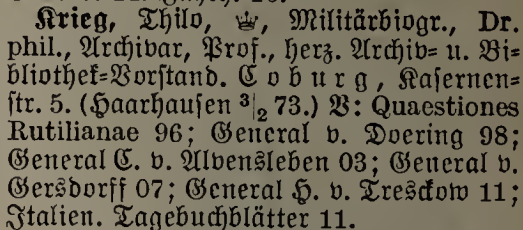 Krieg, Thilo, ♕, Militärbiogr., Dr.
phil., Archivar, Prof., herz. Archiv= u. Bi=
bliothek=Vorstand. Coburg, Kasernen=
str. 5. (Haarhausen 3|2 73.) V: Quaestiones
Rutilianae 96; General v. Doering 98;
General C. v. Alvensleben 03; General v.
Gersdorff 07; General H. v. Tresckow 11;
Italien. Tagebuchblätter 11.